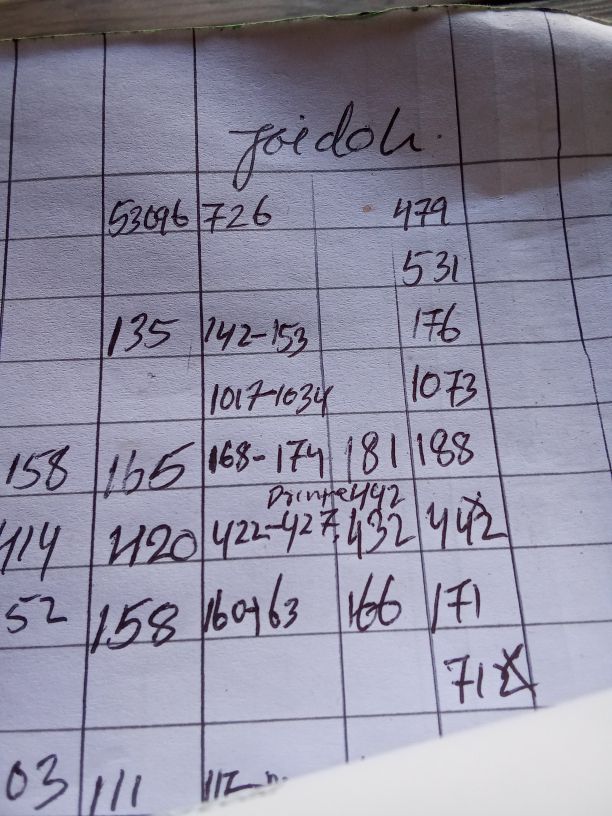 joidoh.
53096 726 479
531
135 142-153 176
1017-1034 1073
158 165 168-174 181 188
442
414 420 422-427 432 442
52 158 160-163 166 171
712
03 111 112